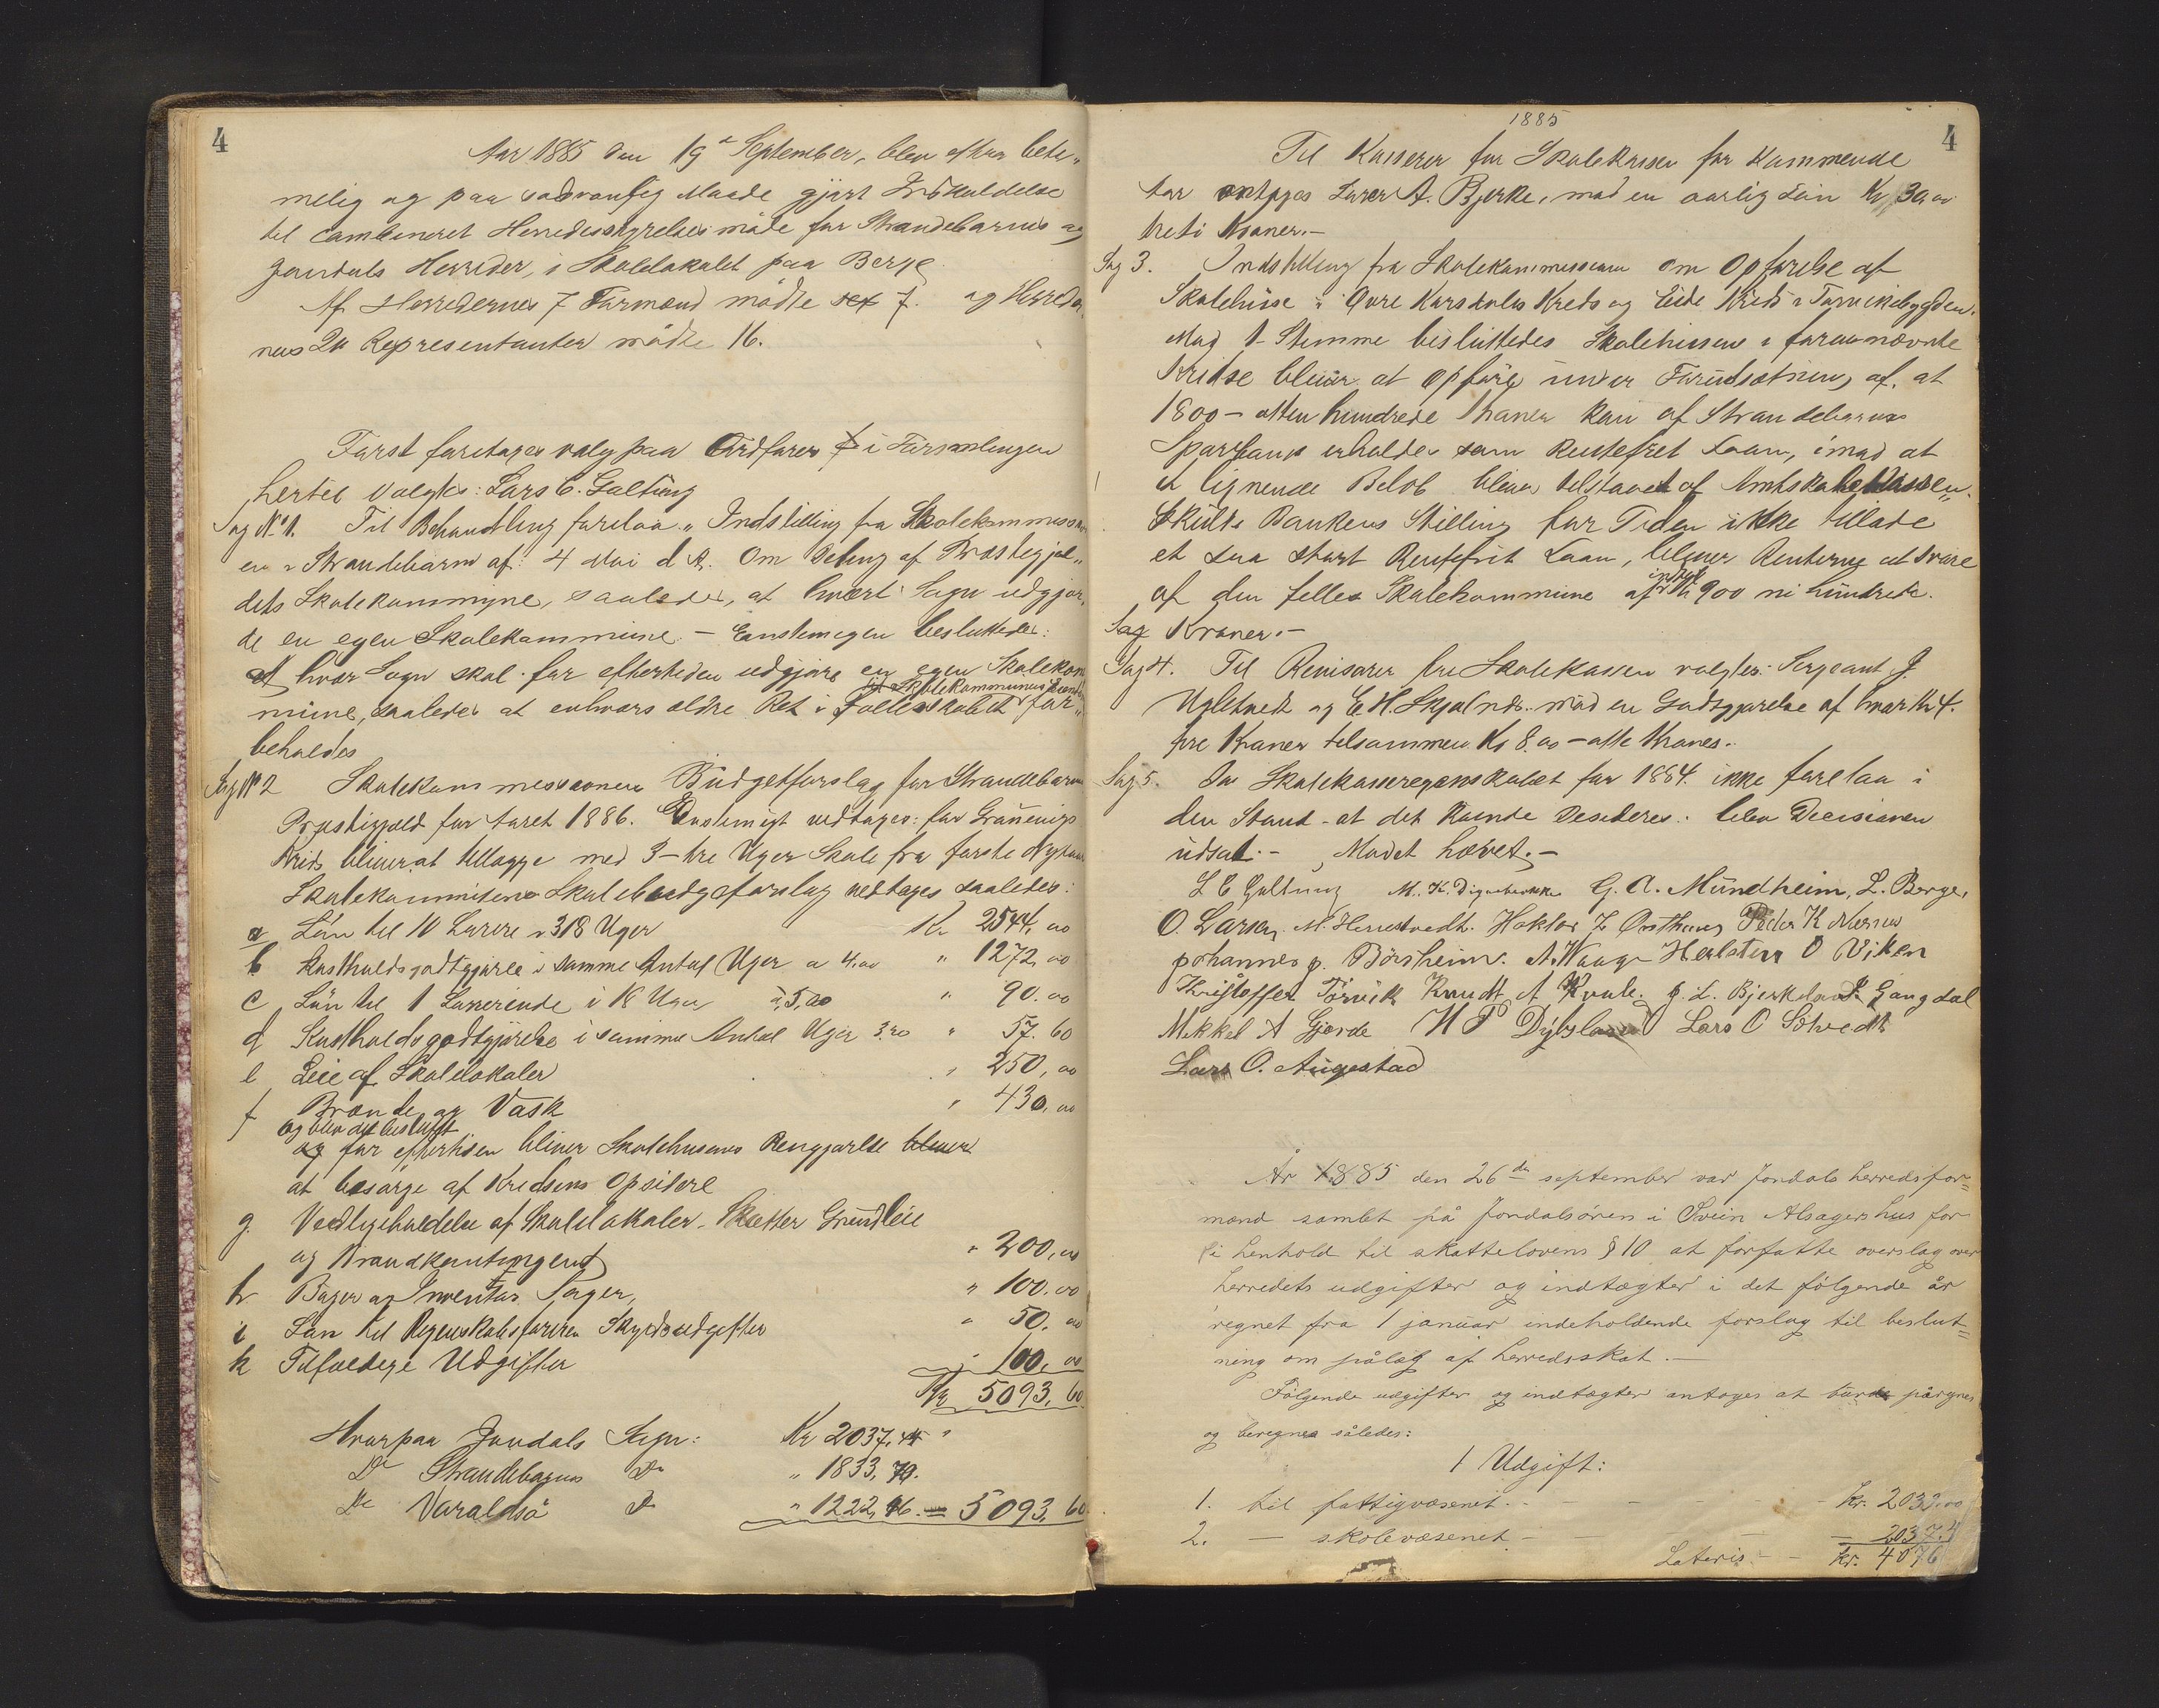 4
Aar 1885 den 19de September, blev efter bete„
melig og paa sædvanlig Maade gjort Indkaldelse
til Combineret Herredsstyrelses møde for Strandebarms og
Jondals Herreder, i Skolelokalet paa Berge
Af Herredernes 7 Formænd mødte 7. og Herreder„
nes 20 Representanter mødte 16.
Først foretages valg paa Ordfører i Forsamlingen
hertil valgtes: Lars E. Galtung
Sag No 1. Til Behandling forelaa „Indstilling fra Skolekommission
en i Strandebarm af 4 Mai d. A. Om Deling af Præstegjel„
dets Skolekommune, saaledes, at hvert Sogn udgjor„
de en egen Skolekommune. — Eenstemigen besluttedes:
At hvor Sogn skal for eftertiden udgjøre en egen Skolekom
mune, saaledes at enhvers ældre Ret i Fællesskabet for„
beholdes
Sag No 2 Skolekommissionens Budgetforslag for Strandebarm
Præstegjæld for Aaret 1886. Enstemigt vedtages: for Grønenigs
Kreds bliver at tillægge med 3 – tre Uger Skole fra første Nytaar
Skolekommisions Skolebudgetforslag vedtages saaledes:
a Løn til 10 Lærere i 318 Uger Kr. 2544,00
b Kostholdsgodtgjørelse i samme Antal Uger a 4,00 " 1272,00
c Løn til 1 Lærerinde i 18 Uger à 5,00 " 90.00
d Kostholdsgodtgjørelse i samme Antal Uger 3.20 " 57.60
e Leie af Skolelokaler " 250,00
f Brænde og Vask " 430,00
og blev det besluttet
og for eftertiden bliver Skolehusenes Rengjørelse bliver
at besørge af Kredsens Opsidere
g. Vedligeholdelse af Skolelokaler – Skatter Grundleie
og Brandkontingent " 200,00
h Bøger og Inventar Sager, " 100.00
i Løn til Regnskabsføreren Skydsudgifter " 50,00
k Tilfældige Udgifter " 100,00
Kr 5093,60
Hvorpaa Jondals Sogn: Kr 2037,44 "
Do Strandebarms Do " 1833,70.
Do Varaldsø Do " 1222,46. = 5093,60
1885
4
Til Kasserer for Skolekassen for kommende
Aar antages Lærer A. Bjerke, mod en aarlig Løn Kr 30,00
treti Kroner.—
Sag 3. Indstilling fra Skolekommissionen om Opførelse af
Skolehuse i Øvre Kreds og Eide Kreds i Tørvikebygden.
Mod 1 Stemme besluttedes Skolehusene i forannævnte
Kredse bliver at opføre under Forudsætning af, at
1800 – atten hundrede Kroner kan af Strandebarms
Sparebank erholdes som Rentefrit Laan, imod at
et lignende Beløb bliver tilstaaet af Amtskolekassen.
Skulde Bankens Stilling for Tiden ikke tillade
et saa stort Rentefrit Laan, bliver Renterne at svare
af den felles Skolekommune af indtil Kr 900 ni hundrede
Sag Kroner.—
Sag 4. Til Revisorer for Skolekassen valgtes: Sergeant J.
Ugletvedt og E. H. Skjelnds. mod en Godtgjørelse af hver Kr 4.
fire Kroner tilsammen Kr 8.00 – otte Kroner.
Sag 5. Da Skolekasseregnskabet for 1884 ikke forelaa i
den Stand – at det kunde Desideres: blev Decisionen
udsat.— Mødet hævet.—
L E Galtung M. K. G. A. Mundheim, L. Berge,
O. Larsen, M. Herrestvedt. Haktor Z Østhuus Peder K Næsse
Johannes J. Børsheim. A. Waage Herlatern O Viken
Kristoffer Tørvik Knudt A Kvale. J. L. Bjerkeland Gangdal
Mikkel A Gjerde H P Dybsland Lars O Sætvedt
Lars O. Augestad
År 1885 den 26de september var Jondals herredsfor=
mænd samlet på Jondalsøren i Svein Alsagers hus for
i henhold til skattelovens § 10 at forfatte overslag over
herredets udgifter og indtægter i det følgende år
regnet fra 1 januar indeholdende forslag til beslut=
ning om pålæg af herredsskat.—
Følgende udgifter og indtægter antages at burde påregnes
og beregnes således:
1 Udgift:
1. til fattigvæsenet. - - - - kr. 2039.00
2. — skolevæsenet - - - — 2037.4
Lateris - - kr. 4076